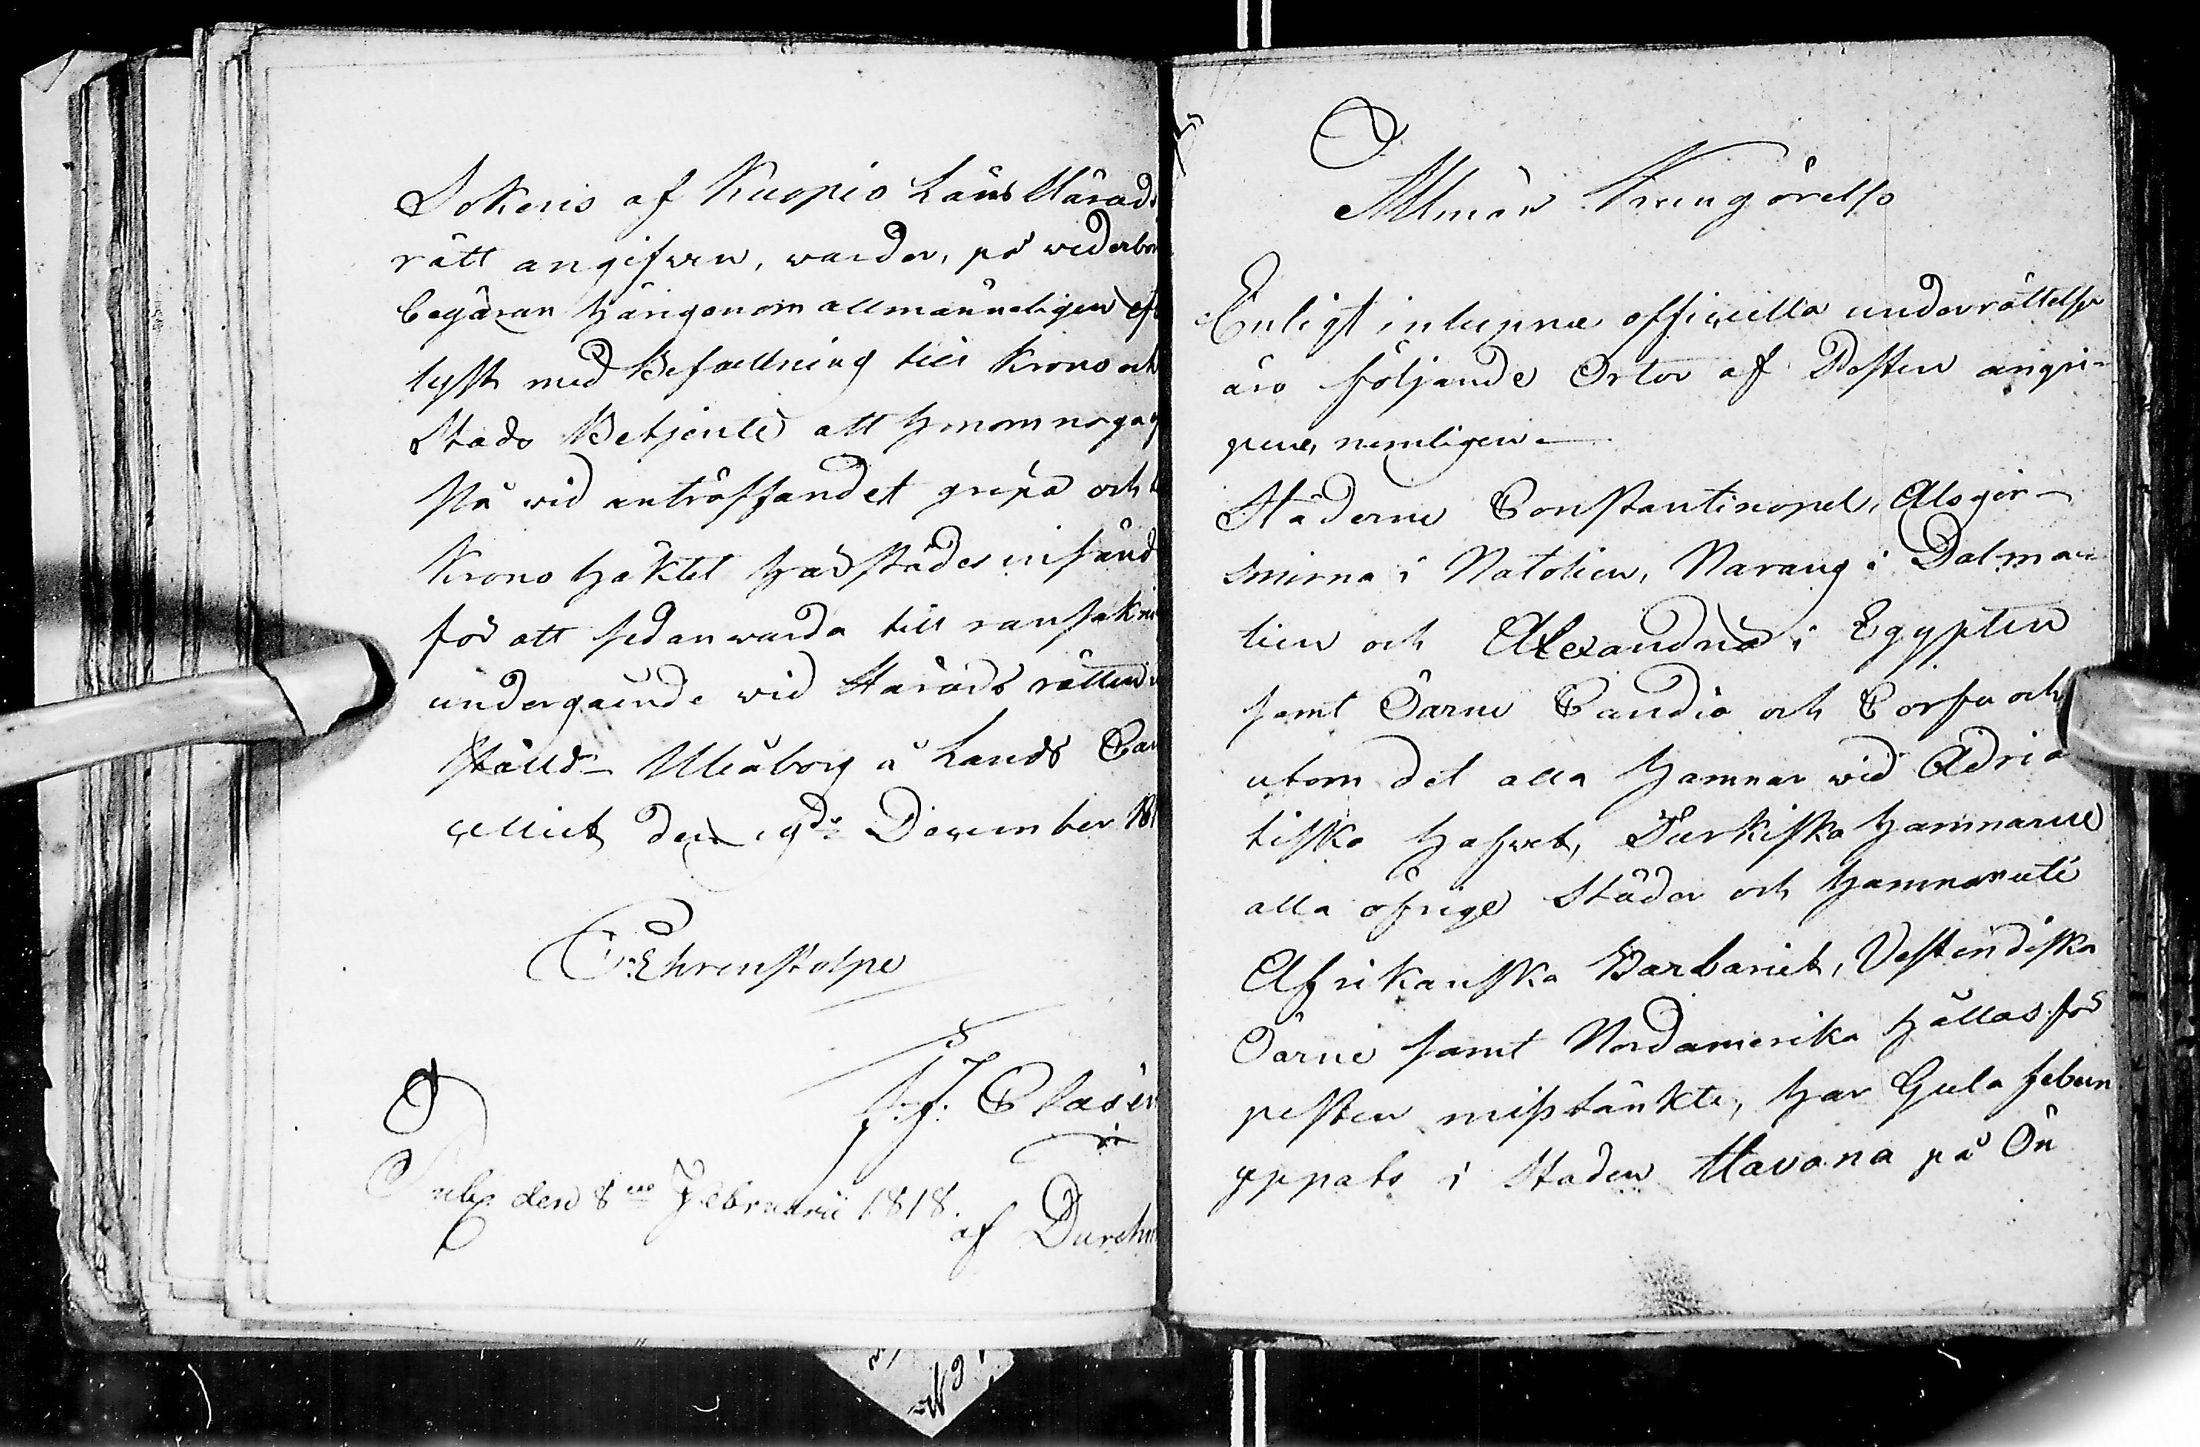 Sokeris af Kuopio Läns Härads
rätt angifven, warder, på wederbör
begäran härigenom allmänneligen eft
lyst med Befallning till Krono och
Stads Betjente att honom noga
stå wid anträffandet gripa och
Krono häktet härstädes insänd
för att sedan warda till ransakni
undergående wid Härads rätten
ställd – Uleåborg å Lands Can
celliet den 19de December 181
C: Ehrenstolpe
J. J. Clasén
Publ den 8de Februarii 1818.
af Durchm
Allmän Kungörelse
Enligt inlupne officiella underrättelser
äro följande Orter af Pesten angri-
pene, nemligen –
Städerne Constantinopel, Alsgier –
Smirna i Natolien, Narang i Dalma-
tien och Alexandria i Egypten
samt Öarne Candia och Corfu och
utom det alla hamnar wid Adria
tiska hafvet, Turkiska hamnarne
alla öfrige Städer och hamnar uti
Afrikanska Barbariet, Vestindiska
Öarne samt Nordamerika hållas för
pesten misstänkte, har Gula febern
yppats i Staden Havana på Ön